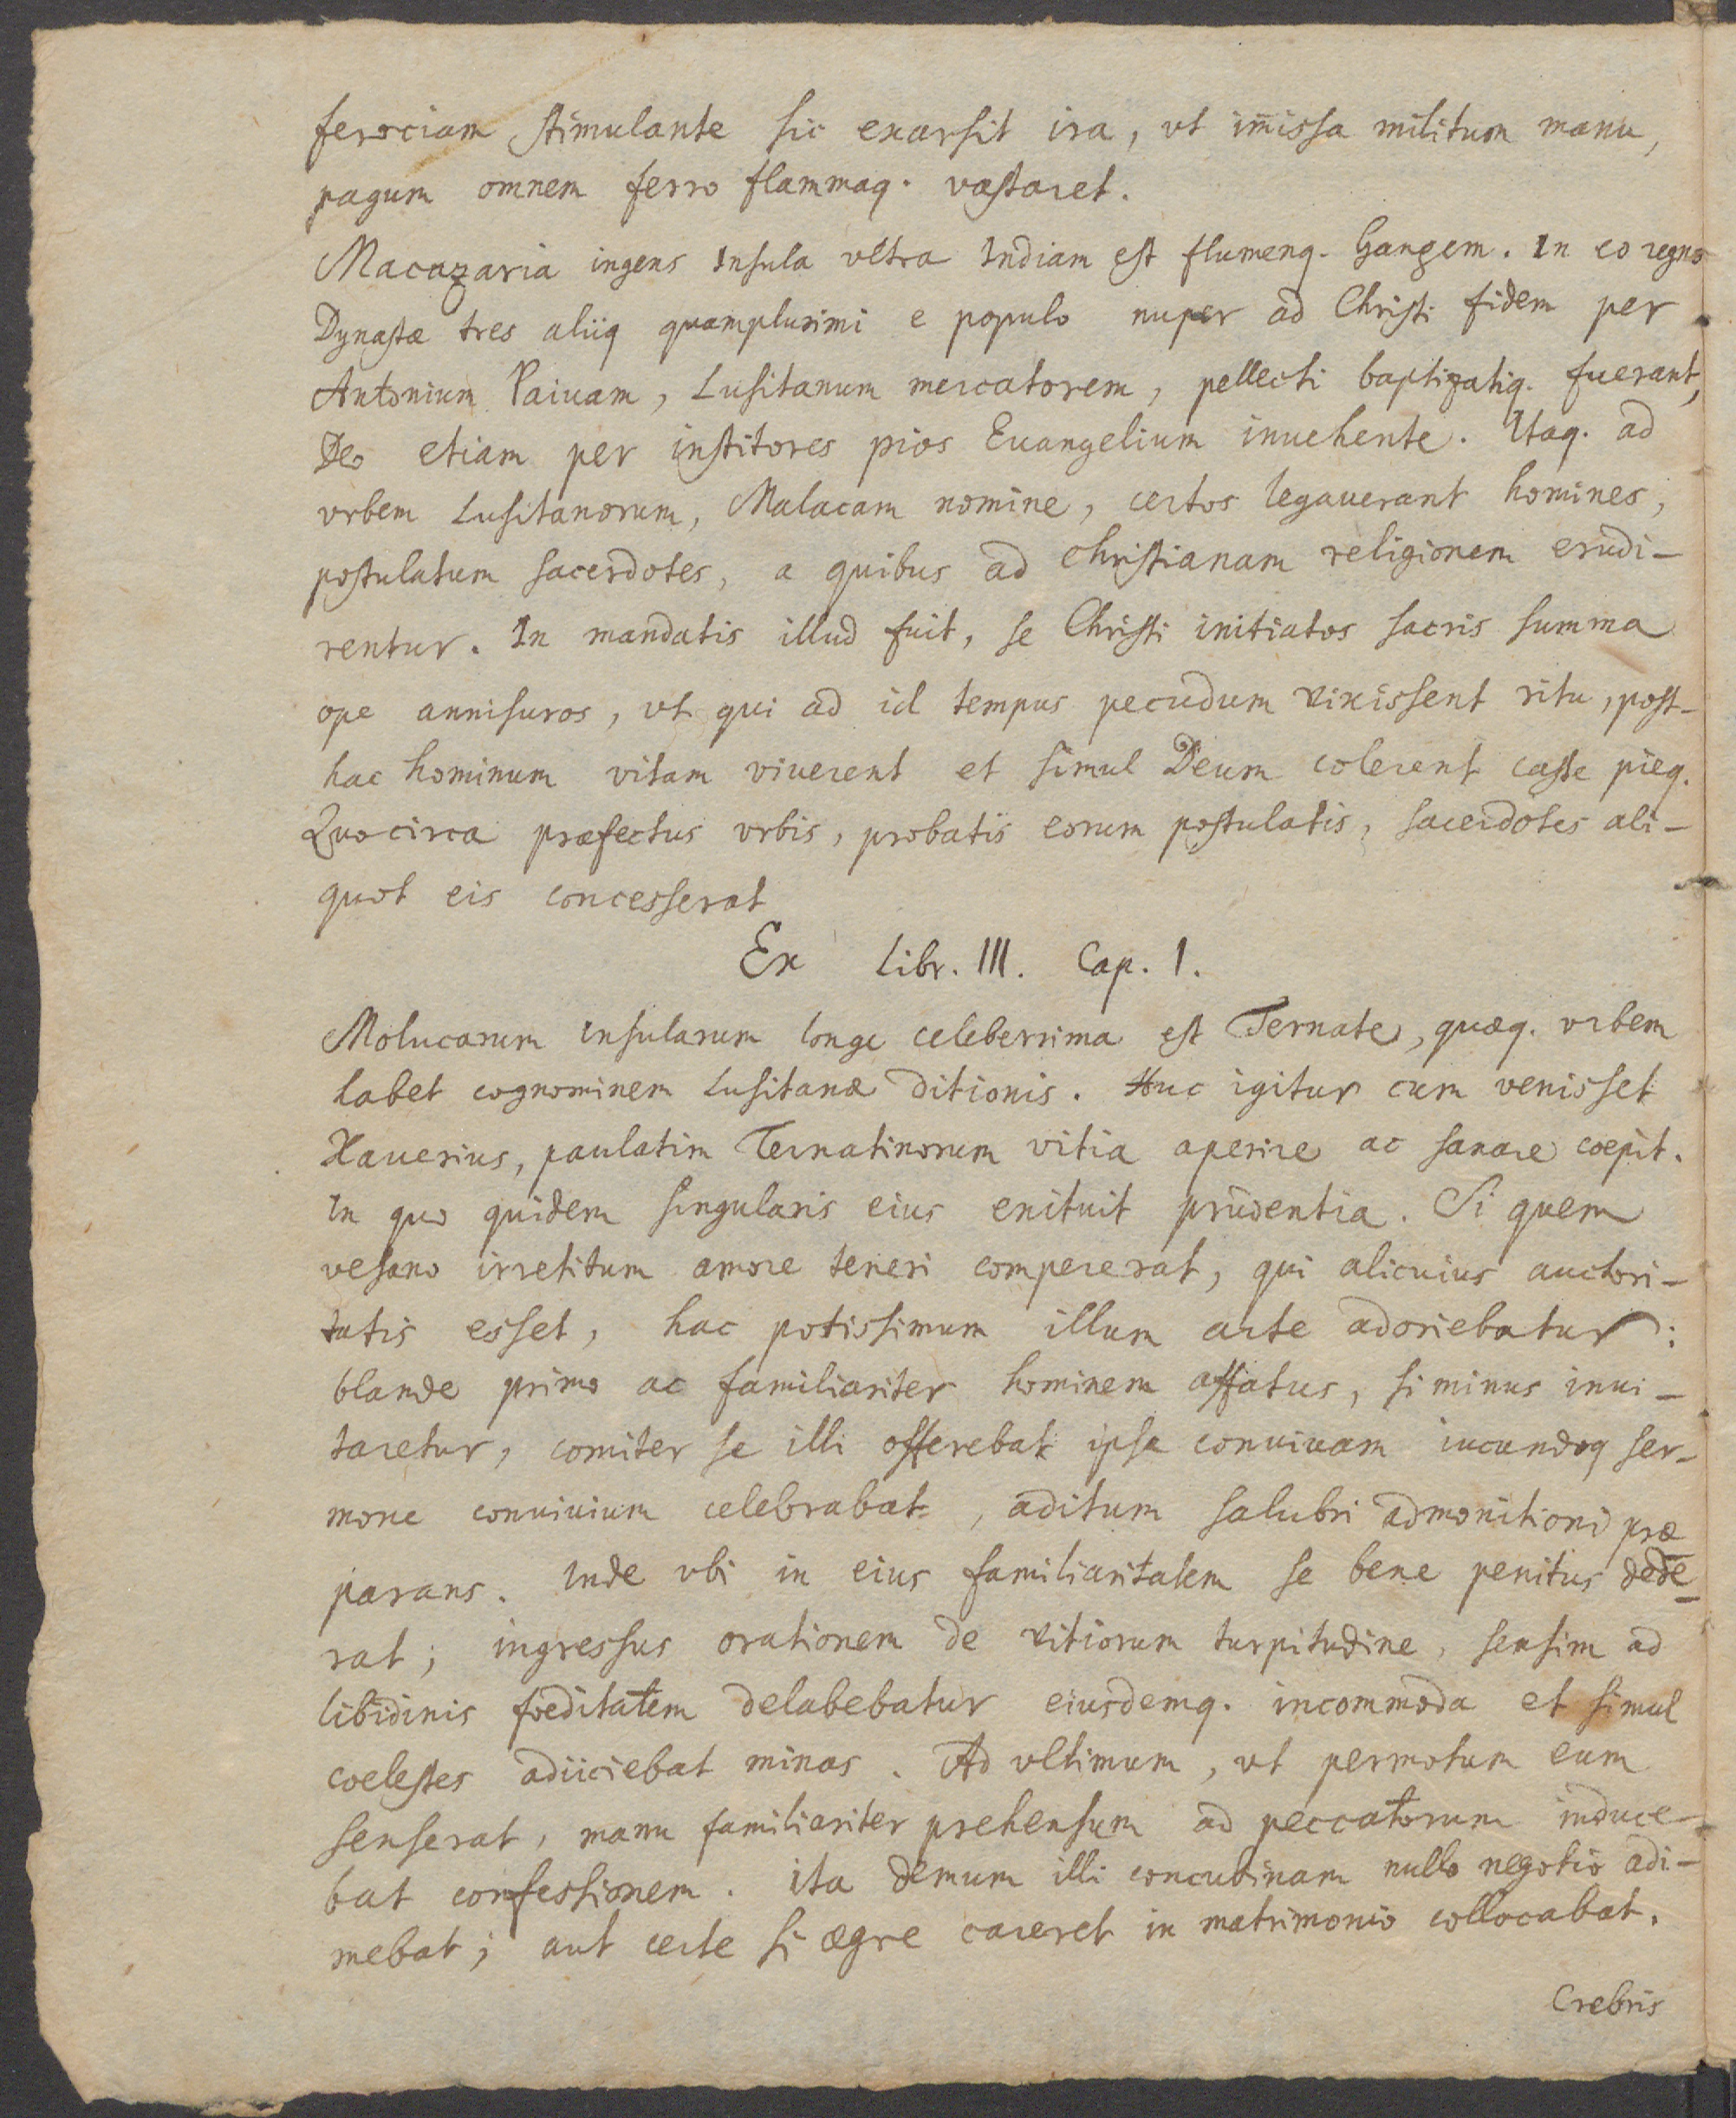 ferociam stimulante sic exarsit ira, vt im̄issa militum manu,
pagum omnem ferro flammaq. vastaret.
Macazaria ingens Insula vltra Indiam est flumenq. Gangem. In eo regno
Dynastæ tres aliiq quamplurimi e populo nuper ad Christi fidem per
Antonium Paiuam, Lusitanum mercatorem, pellecti baptizatiq. fuerant,
Deo etiam per institores pios Euangelium inuehente. Itaq. ad
vrbem Lusitanorum, Malacam nomine, certos legauerant homines,
postulatum sacerdotes, a quibus ad Christianam religionem erudi-
rentur. In mandatis illud fuit, se Christi initiatos sacris summa
ope annisuros, vt qui ad id tempus pecudum vixissent ritu, post-
hac hominum vitam viuerent et simul Deum colerent caste pieq.
Quocirca præfectus vrbis, probatis eorum postulatis, sacerdotes ali-
quot eis concesserat
Ex Libr. III. Cap. 1.
Molucarum insularum longe celeberrima est Ternate, quæq. vrbem
habet cognominem Lusitanæ ditionis. Huc igitur cum venisset
Xauerius, paulatim Ternatinorum vitia aperire ac sanare coepit.
In quo quidem singularis eius enituit prudentia. Si quem
vesano irretitum amore teneri compererat, qui alicuius auctori-
tatis esset, hac potissimum illum arte adoriebatur:
blande primo ac familiariter hominem affatus, si minus inui-
taretur, comiter se illi offerebat ipse conuiuam iucundoq ser-
mone conuiuium celebrabat, aditum salubri admonitioni præ
parans. Inde vbi in eius familiaritatem se bene penitus dede-
rat; ingressus orationem de vitiorum turpitudine, sensim ad
libidinis foeditatem delabebatur eiusdemq. incommoda et simul
coelestes adiiciebat minas. Ad vltimum, vt permotum eum
senserat, manu familiariter prehensum ad peccatorum induce-
bat confessionem. Ita demum illi concubinam nullo negotio adi-
mebat; aut certe si ægre careret in matrimonio collocabat.
Crebris